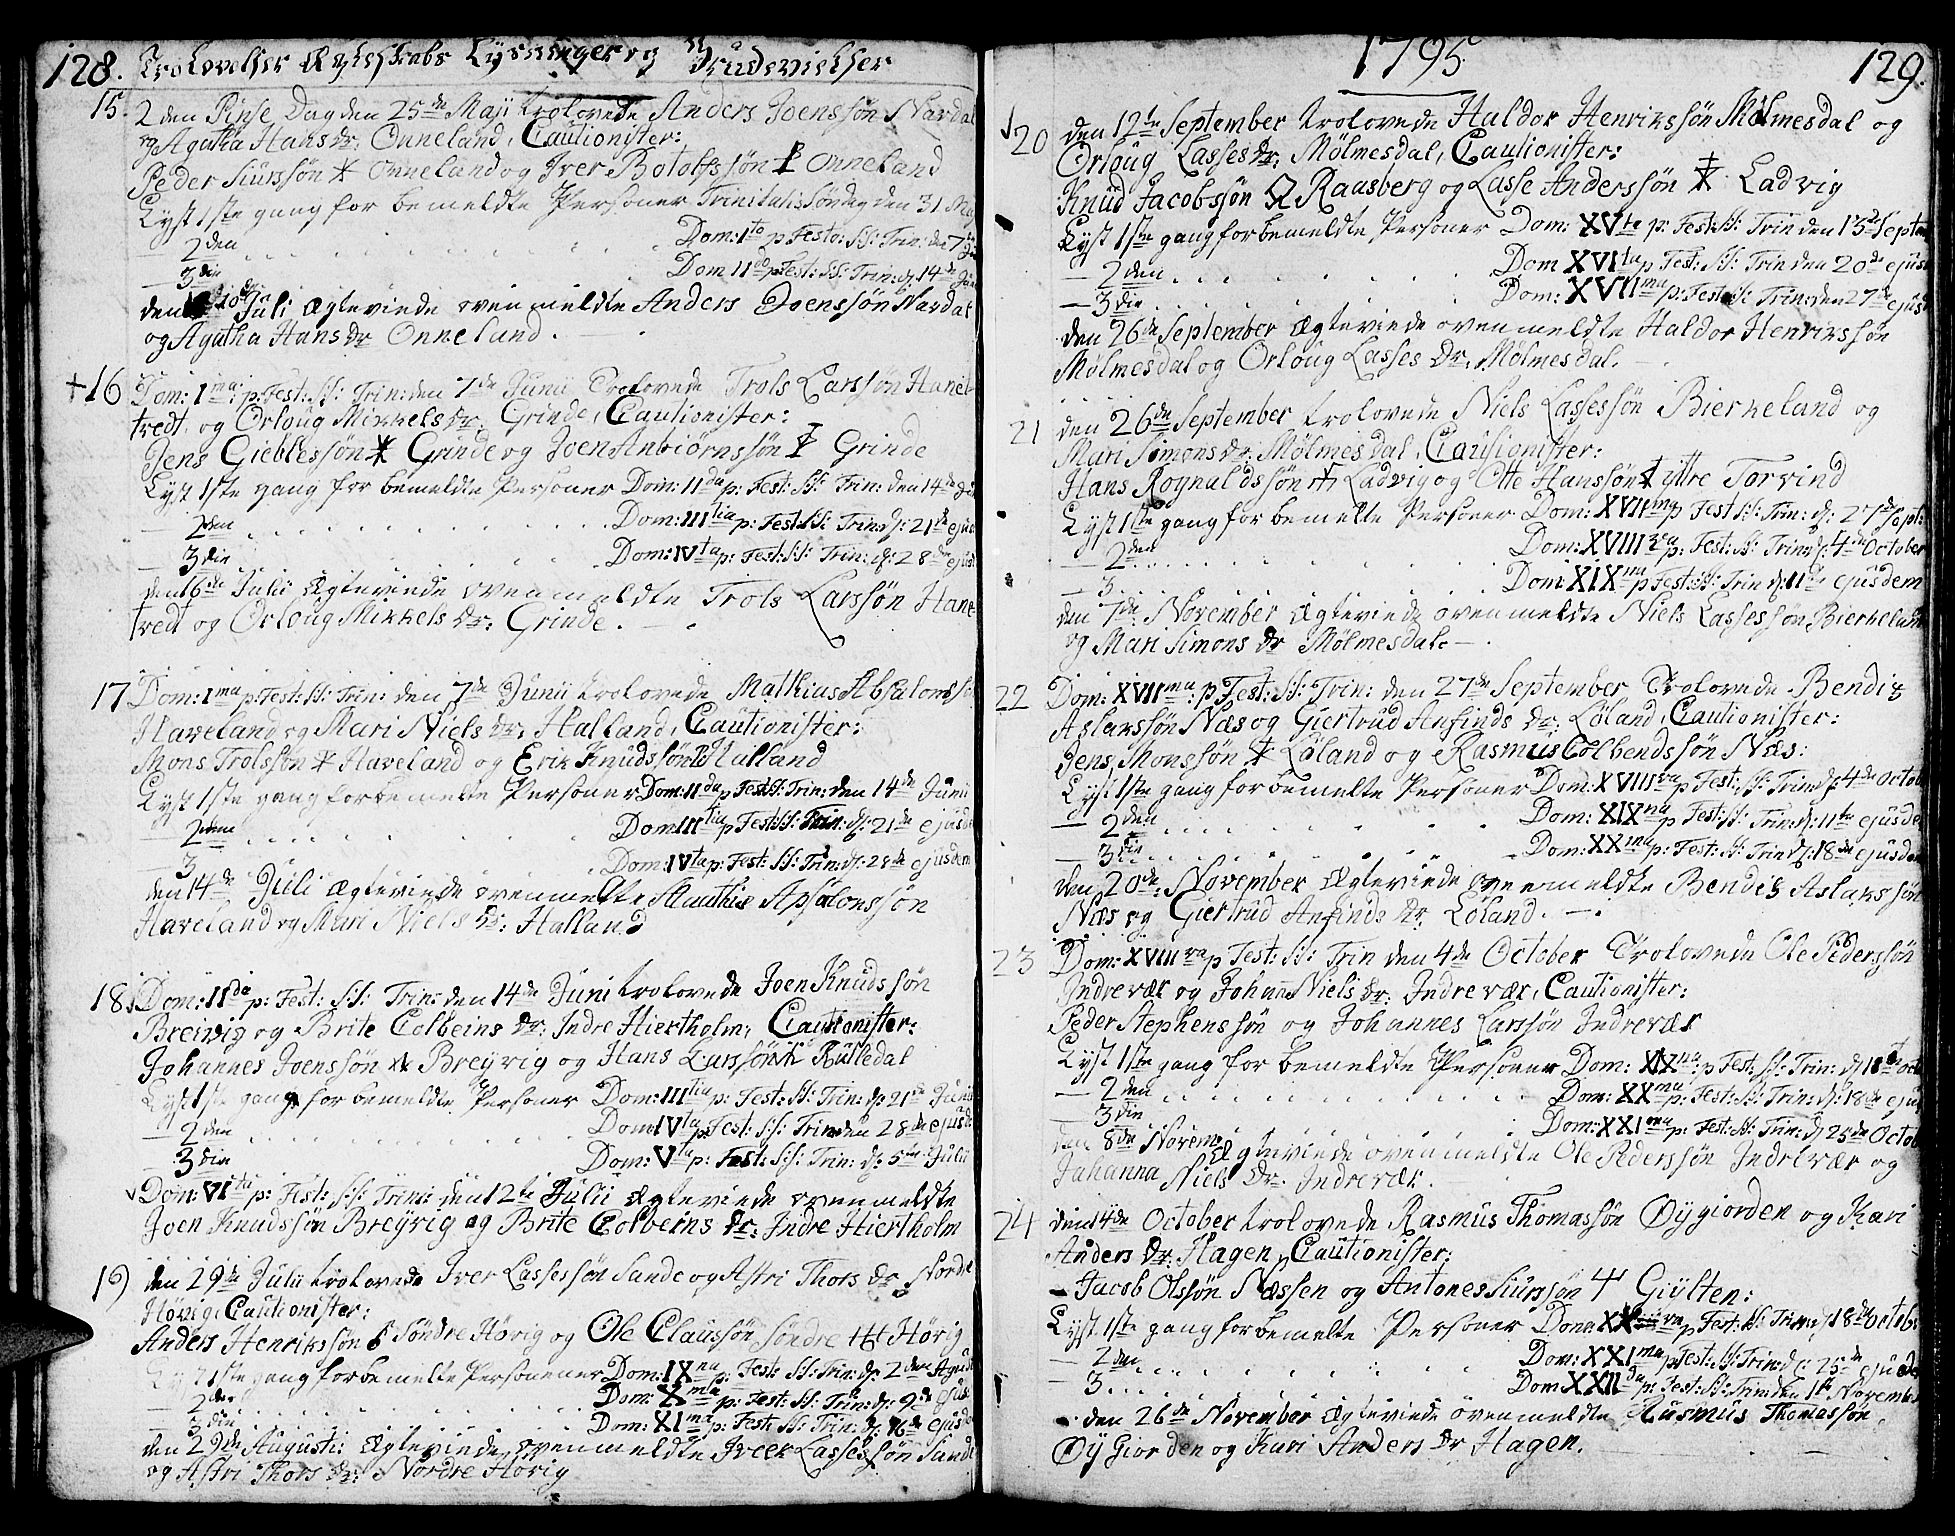 128. Trolovelser Ægteskabs Lysninger og Brudevielser
15. 2 den Pinse Dag den 25de Maji trolovede Anders Joenssøn Nardal
og Agatha Hans Dr: Onneland, Cautionister:
Peder Siurssøn Onneland og Iver Botolfssøn Onneland
Lyst 1ste gang for bemeldte Personer Trinitatis Søndag den 31 Maj
— 2den . . . . Dom: 1ma p: Festo: SS: Trin: den 7de
— 3die . . . . Dom 11da p: Fest: SS: Trin: d: 14de Juni
den 10de Juli Ægteviede ovenmeldte Anders Joenssøn Nardal
og Agatha Hans Dr Onneland.
+16 Dom: 1ma: p: Fest: SS: Trin: den 7de Junii Trolovede Trols Larssøn Hane-
tredt og Orloug Mikkels Dr: Grinde, Cautionister:
Jens Gieblessøn Grinde og Joen Anbiørnssøn Grinde
Lyst 1ste gang for bemeldte Personer Dom: 11da p: Fest: SS: Trin: den 14de
— 2den . . . . Dom: IIItia p: Fest: SS: Trin: d: 21de ejusd
— 3die . . . . Dom: IVta p: Fest: SS: Trin: d: 28de ejusd
den 16de Julii Ægteviede ovenmeldte Trols Larssøn Hane-
tredt og Orloug Mikkels Dr: Grinde.
17 Dom: 1ma p: Fest: SS: Trin: den 7de Junii trolovede Mathias Absalonssø
Haveland og Mari Niels Dr: Halland, Cautionister:
Mons Trolssøn Haveland og Erik Knudssøn Halland
Lyst 1ste gang for bemelte Personer Dom: 11da p Fest: SS: Trin: den 14de Junii
— 2den . . . . Dom IIItia p Fest: SS: Trin: d: 21de ejusd
— 3 . . . . Dom: IVta p: Fest: SS: Trin: d: 28de ejusdem
den 14de Juli Ægteviede ovenmelte Mathis Apsalonssøn
Haveland og Mari Niels Dr: Halland
18. Dom: 11da p: Fest: SS: Trin: den 14de Juni trolovede Joen Knudssøn
Breivig og Brite Colbeins Dr: Indre Hiertholm, Cautionister:
Johannes Joenssøn Breyvig og Hans Larssøn Rusledal
Lyst 1ste gang for bemeldte Personer Dom: IIItia p: Fest: SS: Trin: d: 21de Junii
— 2den . . . . Dom: IVta p: Fest: SS: Trin: den 28de ejusd
— 3die . . . . Dom: Vta p: Fest: SS: Trin: d: 5te Julii
Dom: VIta p: Fest: SS: Trin: den 12te Julii Ægteviede ovenmeldte
Joen Knudssøn Breyvig og Brite Colbeins Dr: Indre Hiertholm
19 den 29de Julii trolovede Iver Lassessøn Sande og Astri Thors Dr Nordre
Høvig, Cautionister:
Anders Henrikssøn Søndre Høvig og Ole Claussøn Søndre Høvig
Lyst 1ste gang for bemelte Personer Dom: IXna p: Fest: SS: Trin: d: 2den Agust
— 2den . . . . Dom: Xma p: Fest: SS: Trin: d: 9de ejus
— 3die . . . . Dom: XIma p: Fest: SS: Trin: d: 16de ejusd
den 29de Augusti: Ægteviede ovenmeldte Iver Lassessøn Sande
og Astri Thors Dr: Nordre Høvig
1795. 129.
20 den 12te September trolovede Haldor Henrikssøn Mølmesdal og
Orloug Lasses Dr: Mølmesdal, Cautionister:
Knud Jacobssøn Raasberg og Lasse Anderssøn Ladvig
Lyst 1ste gang for bemeldte Personer Dom: XVta p: Fest: SS: Trin den 13de Septem
— 2den . . . . Dom XVIta p Fest: SS: Trin den 20de ejusd
— 3die . . . . Dom: XVIIma p: Fest SS: Trin: den 27de ejusd
den 26de September Ægteviede ovenmeldte Haldor Henrikssøn
Mølmesdal og Orloug Lasses Dr: Mølmesdal.
21 den 26de September trolovede Niels Lassessøn Bierkeland og
Mari Simons Dr: Mølmesdal, Cautionister:
Hans Rognaldssøn Ladvig og Otte Hanssøn yttre Torvind
Lyst 1ste gang for bemelte Personer Dom: XVIIma p Fest SS: Trin: d: 27de Sept:
— 2den . . . . Dom: XVIIIva p: Fest: SS: Trin: d: 4de October
— 3 . . . . Dom: XIXna p Fest: SS: Trin d: 11te ejusdem
den 7de November Ægteviede ovenmeldte Niels Lassessøn Bierkeland
og Mari Simons Dr Mølmesdal.
22 Dom: XVIIma: p: Fest: SS: Trin: den 27de September Trolovede Bendix
Aslakssøn Næs og Giertrud Anfinds Dr: Løland, Cautionister:
Jens Monssøn Løland og Rasmus Colbendssøn Næs:
Lyst 1ste gang for bemelte Personer Dom: XVIIIva p Fest: SS: Trin d: 4de Octob
— 2den . . . . Dom: XIXna p Fest: SS: Trin: d: 11te ejusdem
— 3die . . . . Dom: XXma p: Fest: SS: Trin d: 18de ejusdem
den 20de: November Ægteviede ovenmeldte Bendix Aslakssøn
Næs og Giertrud Anfinds Dr Løland.
23 Dom: XVIIIva p Fest: SS: Trin den 4de October Trolovede Ole Pederssøn
Indrevær og Johanna Niels Dr: Indrevær, Cautionister:
Peder Stephenssøn og Johannes Larssøn Indrevær
Lyst 1ste gang for bemeldte Personer Dom: XIXna: p Fest: SS: Trin: d: 11te Oct
— 2den . . . . Dom: XXma p: Fest: SS: Trin: d: 18de ejus
— 3die . . . . Dom: XXIma p: Fest: SS: Trin: d: 25de Octob
den 8de Novem: Ægteviede ovenmeldte Ole Pederssøn Indrevær og
Johanna Niels Dr: Indrevær.
24 den 14de October trolovede Rasmus Thomassøn Øygiorden og Kari
Anders Dr: Hagen, Cautionister:
Jacob Olssøn Næssen og Antones Siurssøn Giylten:
Lyst 1ste gang for bemelte Personer Dom: XXma p Fest: SS: Trin: d: 18de Octob
— 2den . . . . Dom: XXIma p Fest: SS: Trin: d: 25de ejusdem
— 3 . . . . Dom XXIIda p: Fest: SS: Trin: den 1ste November
den 26de November Ægteviede ovenmeldte Rasmus Thomassøn
Øygiorden og Kari Anders Dr Hagen.